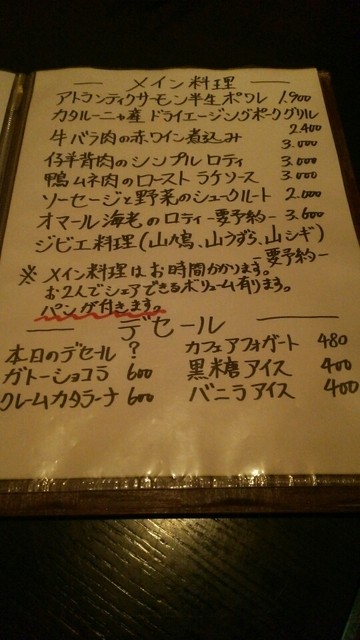 メイン料理
アトランティクサーモン半生ポワレ 1.900
カタルーニャ産 ドライエージングポークグリル
2400
牛バラ肉の赤ワイン煮込み 3.000
仔羊背肉のシンプルロティ 3.000
鴨ムネ肉のロースト ラケソース 3.000
ソーセージと野菜のシュークルート 2.000
オマール海老のロティ -要予約- 3.600
ジビエ料理(山鳩、山うずら、山シギ)
-要予約-
※ メイン料理はお時間かかります。
お2人でシェアできるボリューム有ります。
パンが付きます。
デセール
本日のデセール ?
ガトーショコラ 600
クレームカタラーナ 600
カフェアフォガート 480
黒糖アイス 400
バニラアイス 400